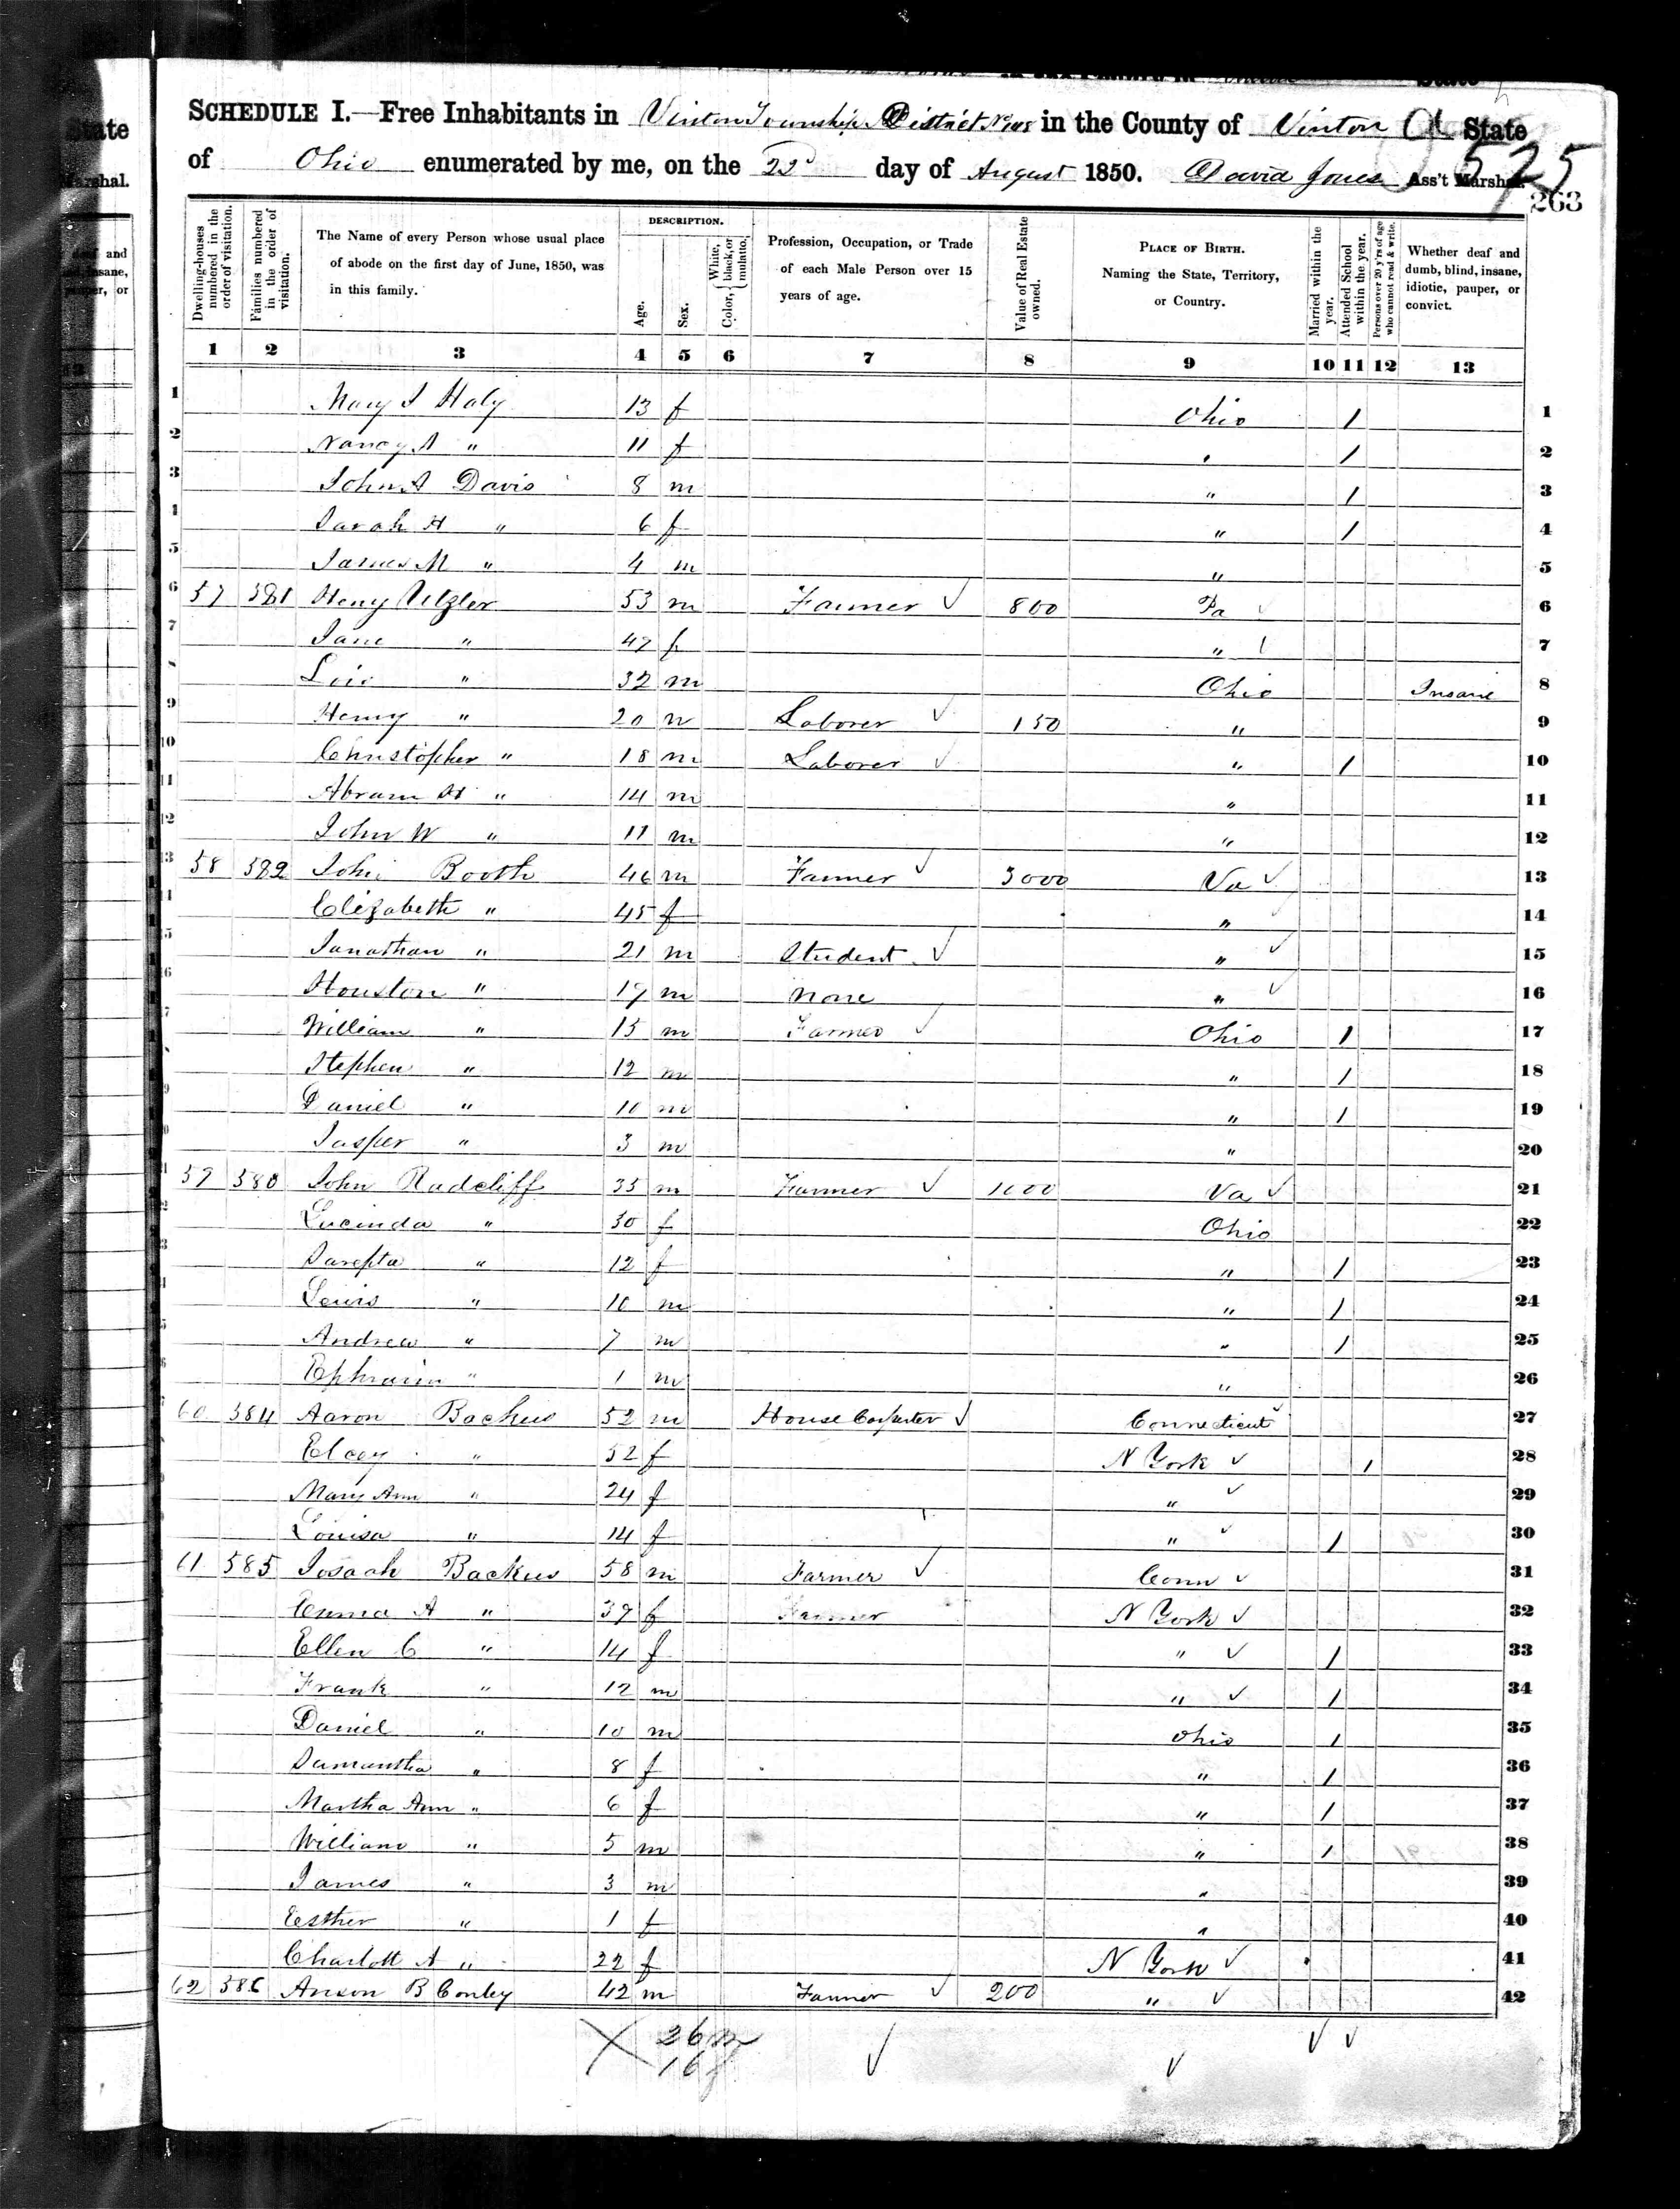 State
SCHEDULE I.—Free Inhabitants in Vinton Township District No 148 in the County of Vinton State
of Ohio enumerated by me, on the 22d day of August 1850. David Jones Ass't Marshal.
525
263
State
Marshal.
deaf and
Dwelling-houses numbered in the order of visitation.
Families numbered in the order of visitation.
The Name of every Person whose usual place of abode on the first day of June, 1850, was in this family.
DESCRIPTION.
Age.
Sex.
Color, { White, black, or mulatto.
Profession, Occupation, or Trade of each Male Person over 15 years of age.
Value of Real Estate owned.
PLACE OF BIRTH. Naming the State, Territory, or Country.
Married within the year.
Attended School within the year.
Persons over 20 y'rs of age who cannot read & write.
Whether deaf and dumb, blind, insane, idiotic, pauper, or convict.
1 2 3 4 5 6 7 8 9 10 11 12 13
1 Mary J Haly 13 f Ohio 1 1
2 Nancy A " 11 f " 1 2
3 John A Davis 8 m " 1 3
Sarah H " 6 f " 1 4
5 James M " 4 m " 5
6 57 581 Heny Utzler 53 m Farmer ✓ 800 Pa ✓ 6
7 Jane " 47 f " 7
Lois " 32 m Ohio Insane 8
9 Henry " 20 m Laborer ✓ 150 " 9
10 Christopher " 18 m Laborer ✓ " 1 10
11 Abram " 14 m " 11
12 John W " 11 m " 12
13 58 582 John Booth 46 m Farmer ✓ 3000 Va ✓ 13
Elizabeth " 45 f " ✓ 14
Jonathan " 21 m Student ✓ " ✓ 15
Houston " 17 m None " ✓ 16
William " 15 m Farmer ✓ Ohio 1 17
Stephen " 12 m " 1 18
Daniel " 10 m " 1 19
Jasper " 3 m " 20
580 John Radcliff 35 m Farmer ✓ 1000 Va ✓ 21
Lucinda " 30 f Ohio 22
Sarepta " 12 f " 1 23
Lewis " 10 m " 1 24
Andrew " 7 m " 1 25
Ephraim " 1 m " 26
60 584 Aaron Backus 52 m House Carpenter ✓ Connecticut ✓ 27
Elcey " 52 f N York ✓ 1 28
Mary Ann " 24 f " ✓ 29
Louisa " 14 f " ✓ 1 30
61 585 Josaah Backus 58 m Farmer ✓ Conn ✓ 31
Emma A " 37 f Farmer N York ✓ 32
Ellen C " 14 f " ✓ 1 33
Frank " 12 m " ✓ 1 34
Daniel " 10 m Ohio 1 35
Samantha " 8 f " 1 36
Martha Ann " 6 f " 1 37
William " 5 m " 1 38
James " 3 m " 39
Esther " 1 f " 40
Charlott A " 22 f N York ✓ 41
62 586 Anson B Conley 42 m Farmer ✓ 200 " ✓ 42
26 m ✓ ✓
16 f ✓ ✓